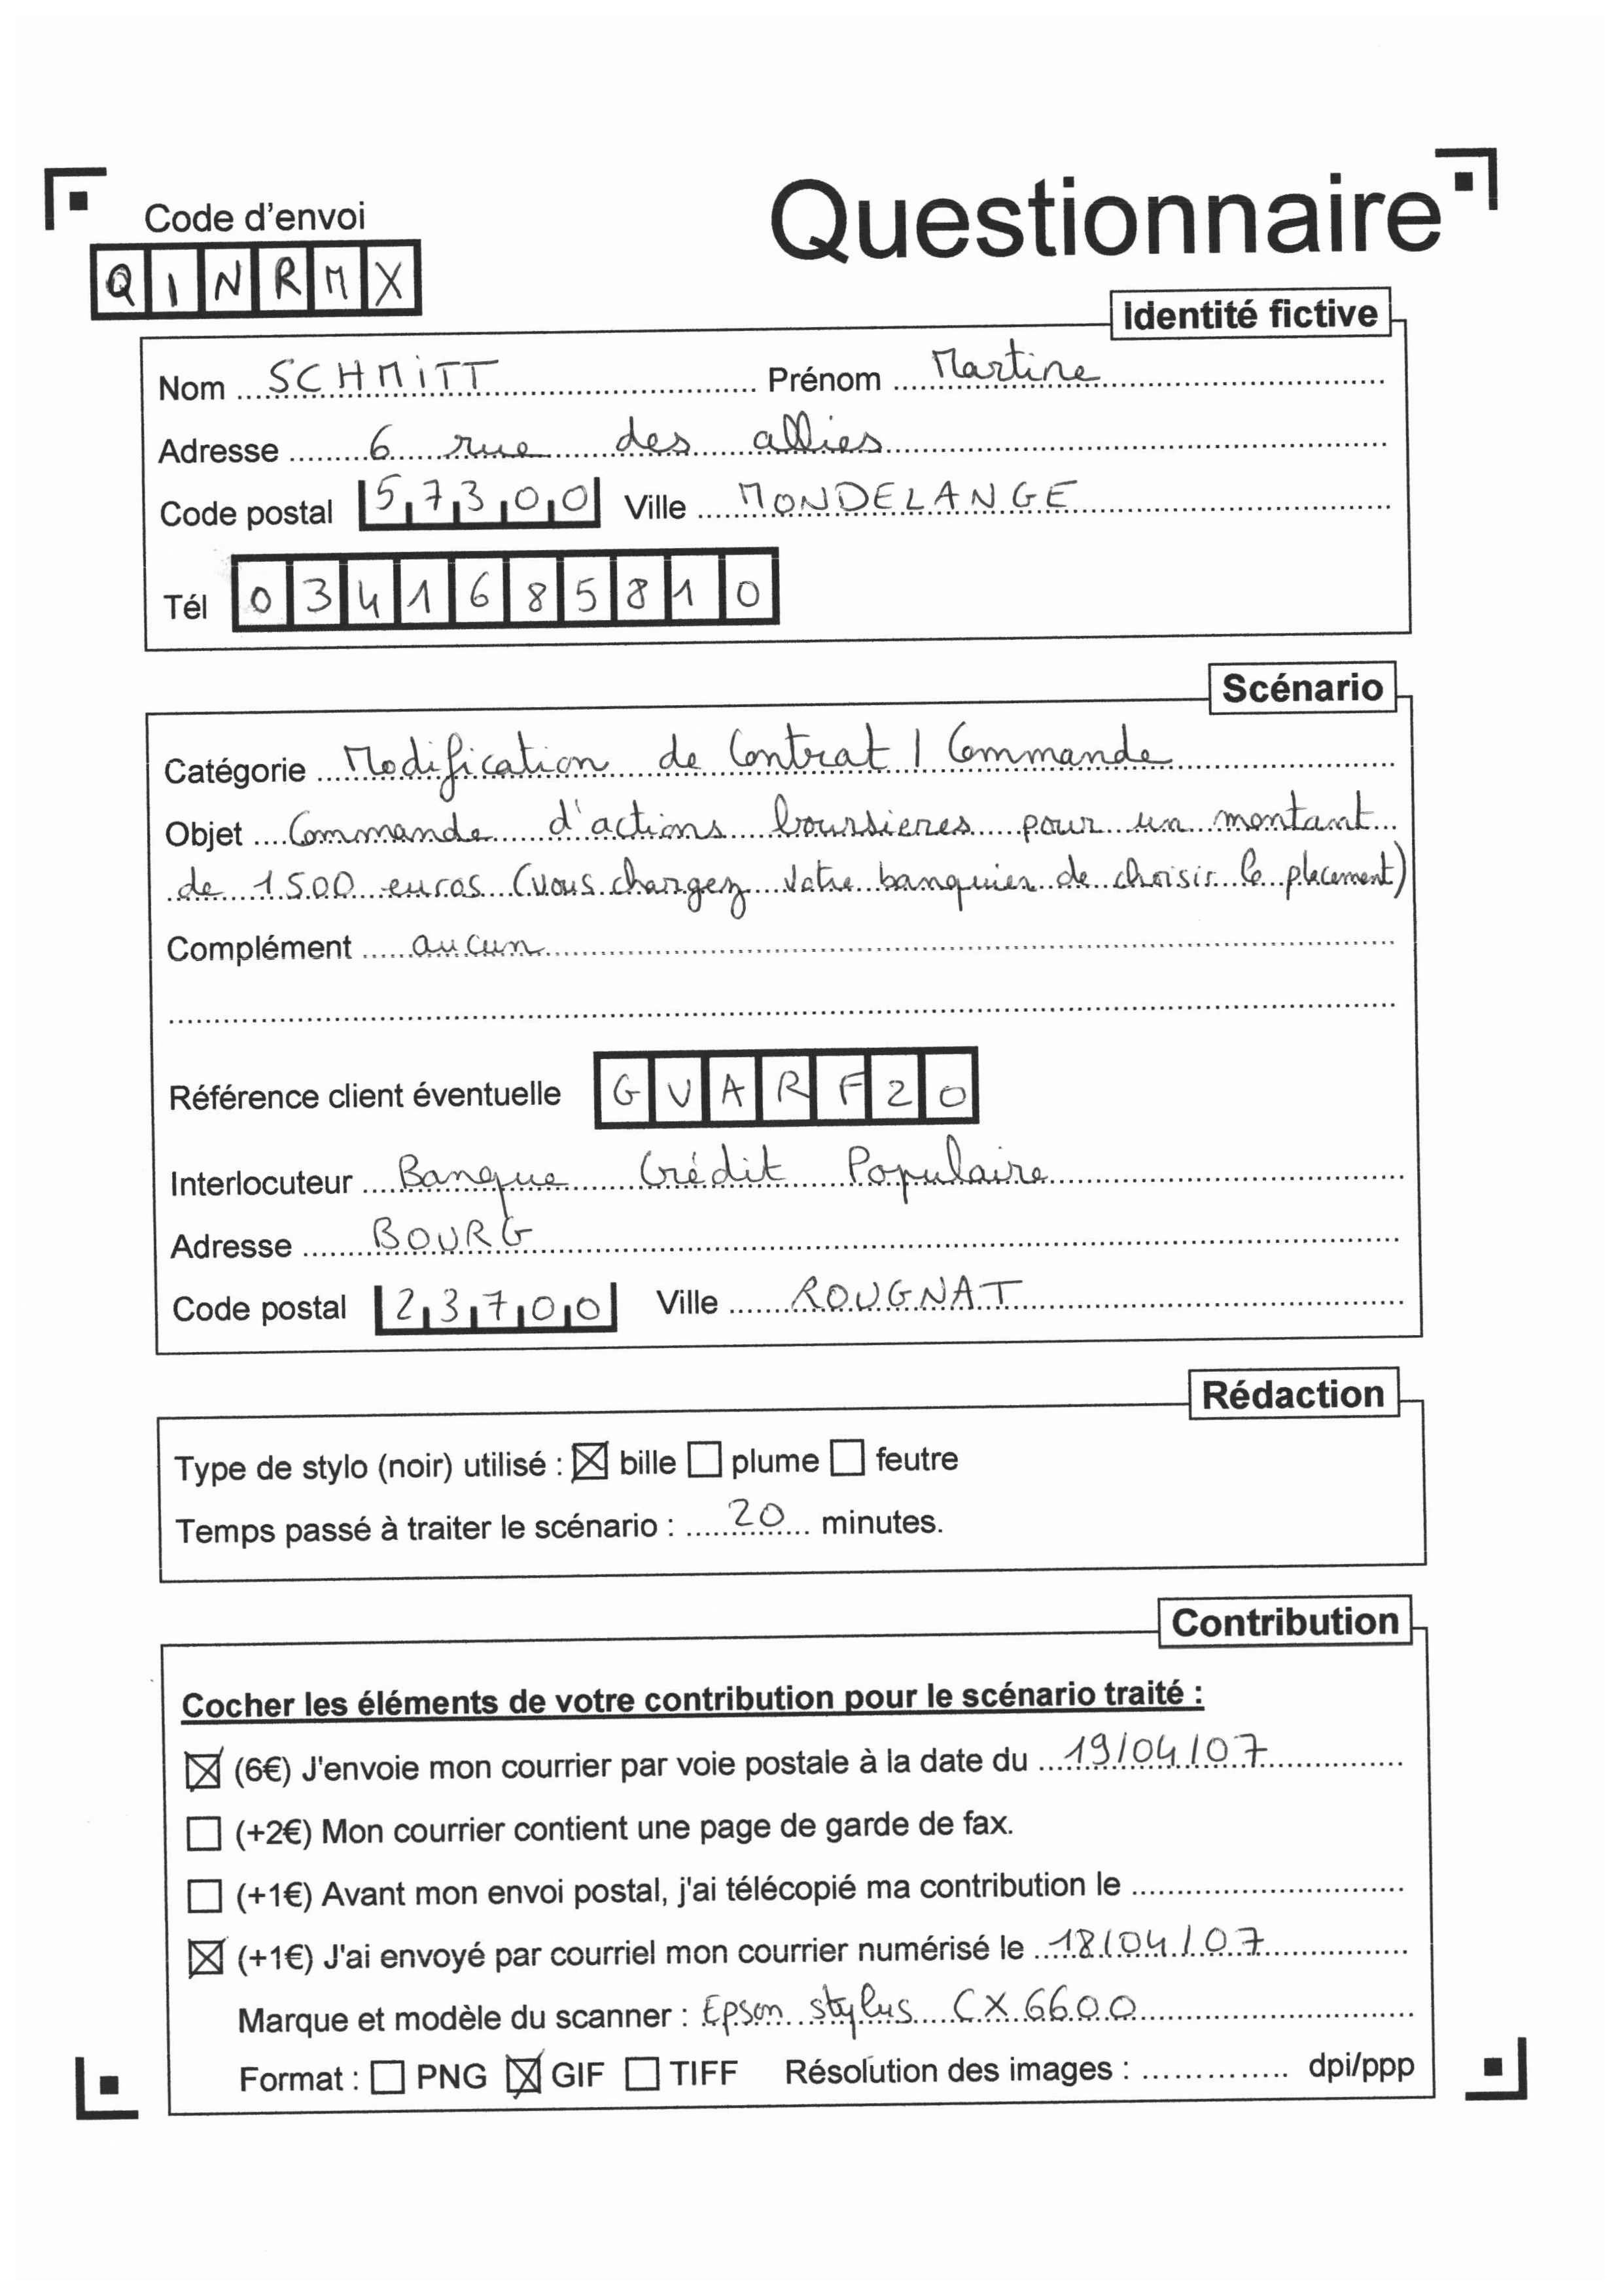 Code d'envoi
Questionnaire
QINRMX
Identité fictive
Nom SCHMITT Prénom Martine
Adresse 6 rue des allies
Code postal 57300 Ville MONDELANGE
Tél 0341685810
Scénario
Catégorie Modification de Contrat / Commande
Objet Commande d'actions boursieres pour un montant
de 1500 euros (vous chargez votre banquier de choisir le placement)
Complément aucun
Référence client éventuelle GVARF20
Interlocuteur Banque Crédit Populaire
Adresse BOURG
Code postal 23700 Ville ROUGNAT
Rédaction
Type de stylo (noir) utilisé : ☒ bille ☐ plume ☐ feutre
Temps passé à traiter le scénario : 20 minutes.
Contribution
Cocher les éléments de votre contribution pour le scénario traité :
☒ (6€) J'envoie mon courrier par voie postale à la date du 19/04/07
☐ (+2€) Mon courrier contient une page de garde de fax.
☐ (+1€) Avant mon envoi postal, j'ai télécopié ma contribution le
☒ (+1€) J'ai envoyé par courriel mon courrier numérisé le 18/04/07
Marque et modèle du scanner : Epson stylus CX6600
Format : ☐ PNG ☒ GIF ☐ TIFF Résolution des images : dpi/ppp